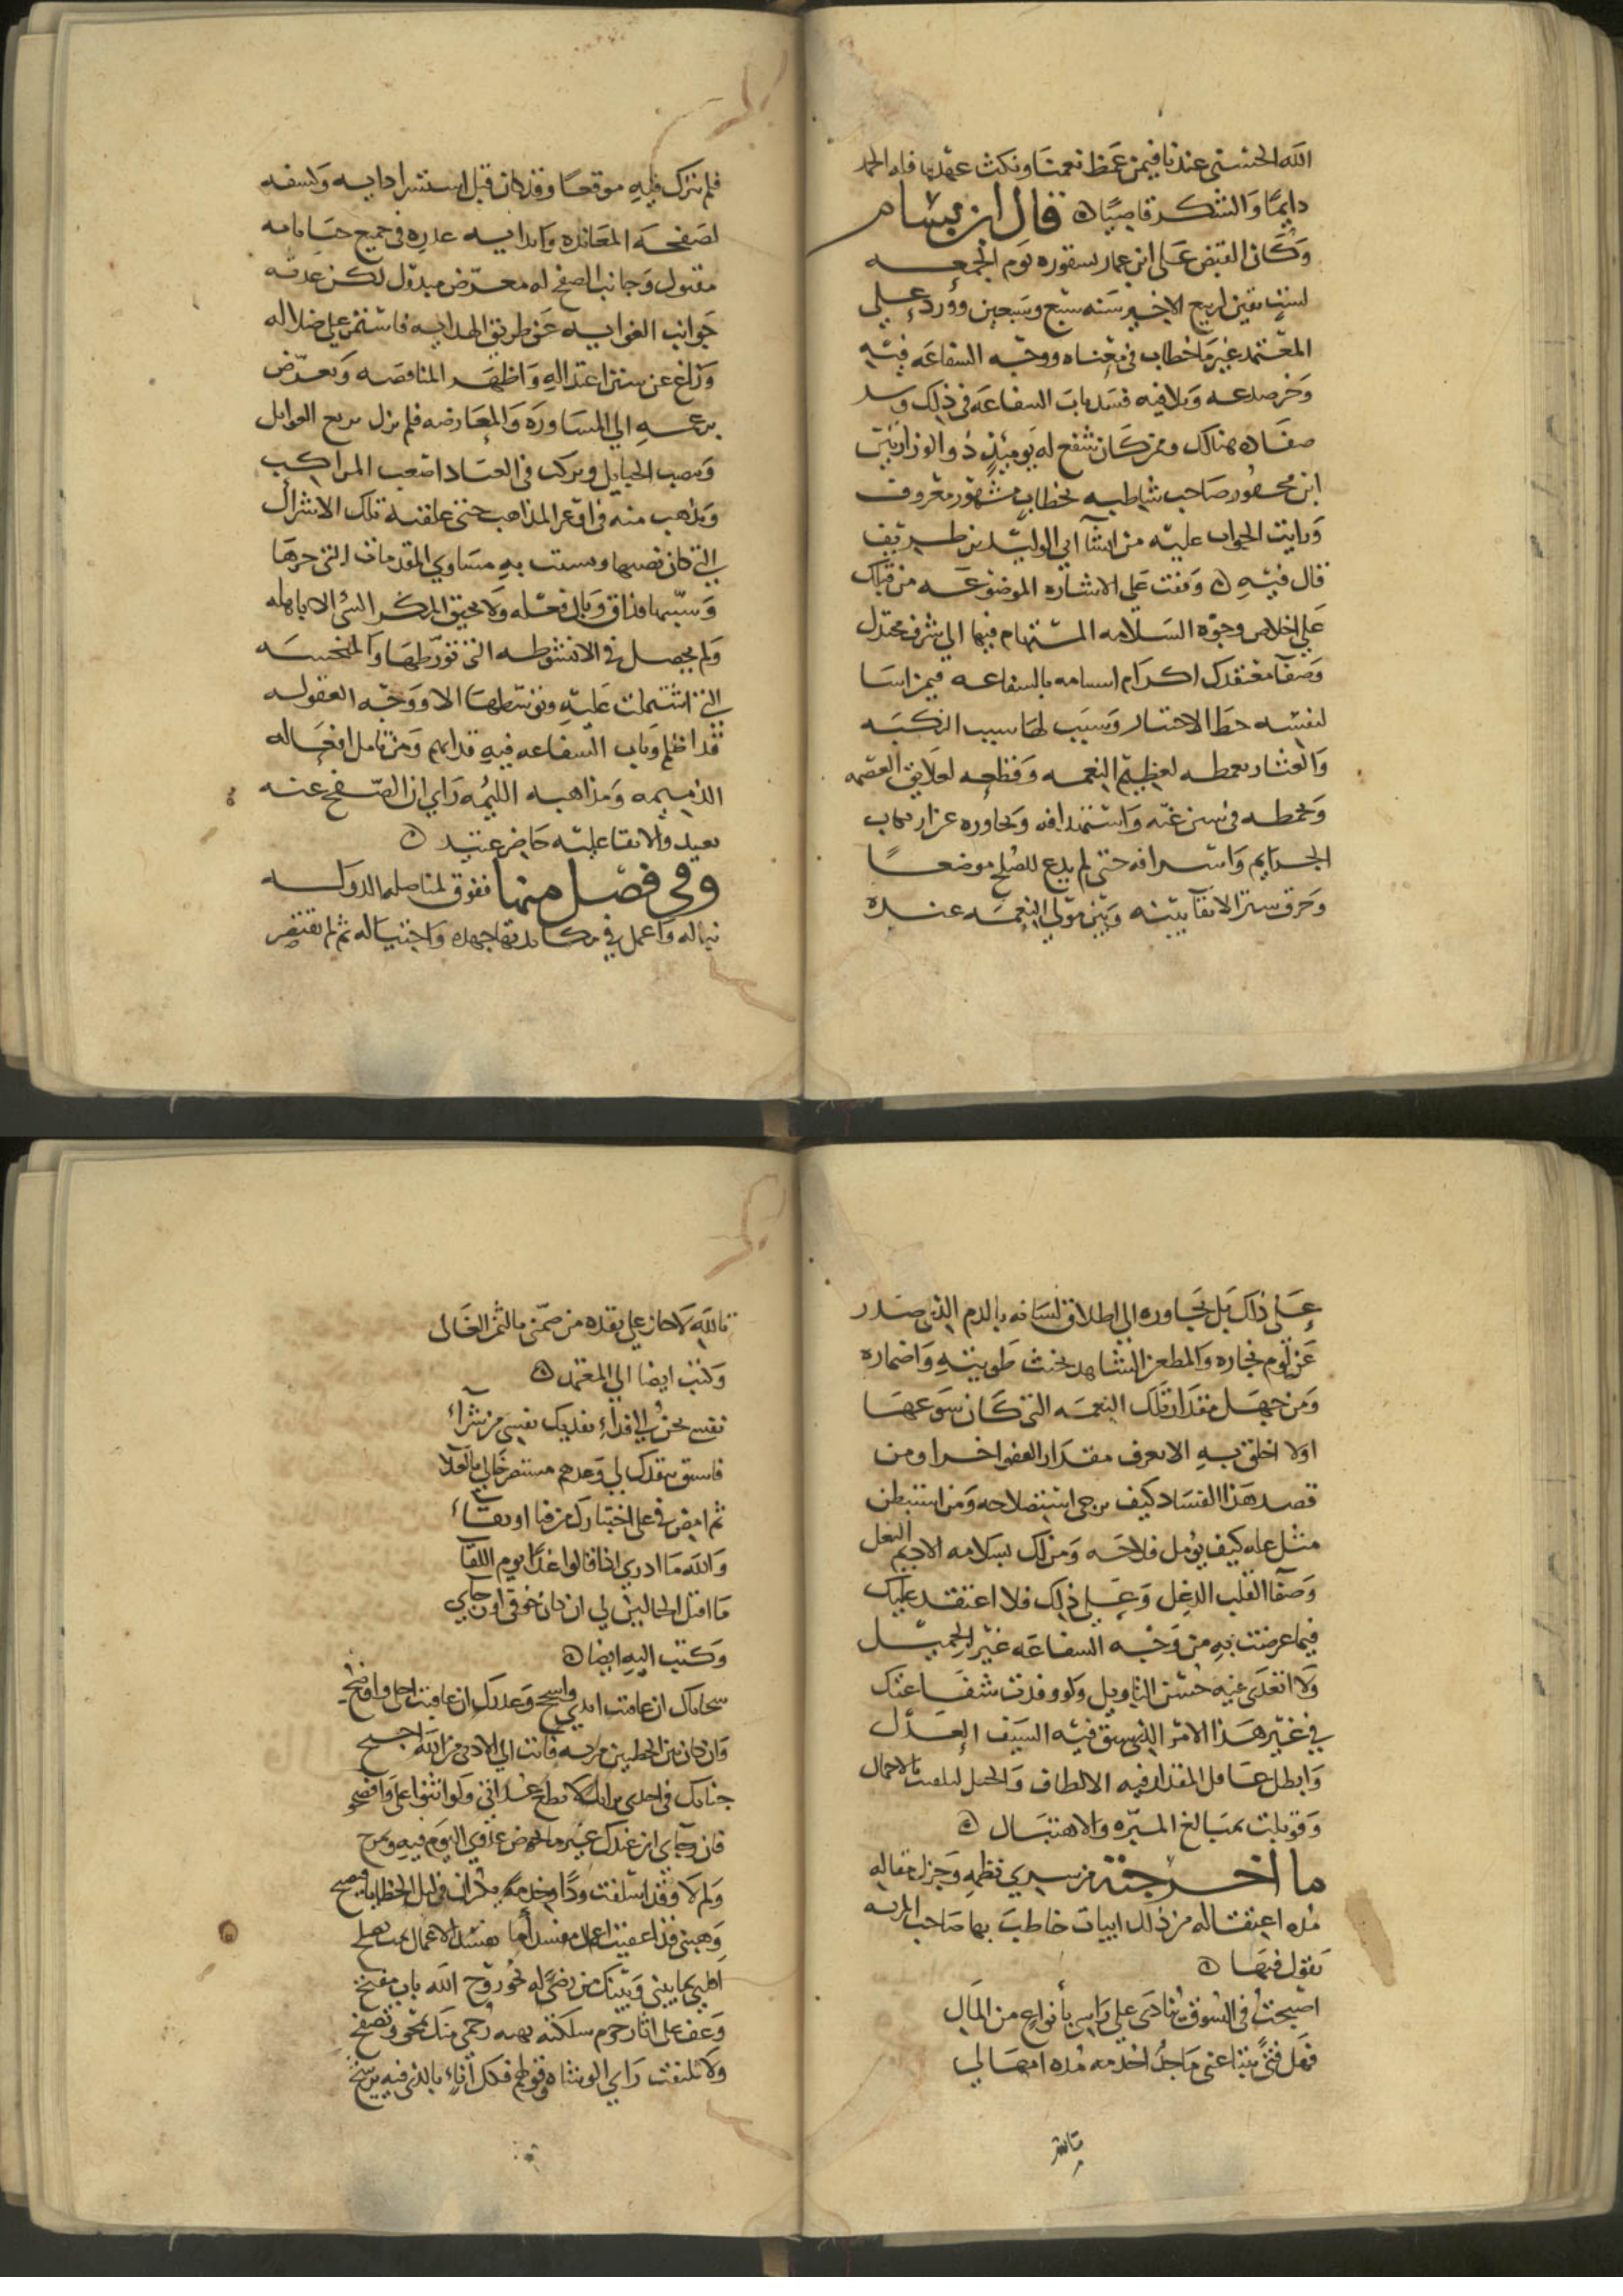 الله الحسنى عندنا فيمن غمط نعمنا ونكث عهدنا فله الحمد
دايمًا والشكر قاصيًا ه قال ابن بسام
وكان القبض على ابن عمار بشقوره يوم الجمعه
لست بقين لربيع الاخير سنه سبع وسبعين وورد على
المعتمد غير ما خطاب في معناه ووجه الشفاعه فيه
فسد باب الشفاعه في ذلك
هنالك وممن كان شفع له يوميذٍ ذو الوزارتين
ابن محقور صاحب شاطبه بخطاب مشهور معروف
ورايت الجواب عليه من انشآ ابي الوليد بن طريف
قال فيه ه وقفت على الاشاره الموضوعه من قبلك
على اخلاص وجوه السلامه المستنام فيها الى شرف محتدك
وصفآ معتقدك اكرام بالشفاعه فيمن اسا
لنفسه حظ الاختيار وسبب لها سبب النكبه
والعثار بغمطه لعظيم النعمه وقطعه لعلايق العصمه
وتخبطه في سنن غيه واستهدافه وتجاوزه في ارتكاب
الجرايم واسرافه حتى لم يدع للصلح موضعًا
وخرق ستر الابقآ بينه وبين مولى النعمه عنده
فلم يترك فيه موقعًا وقد كان قبل استشرا دايه وكشفه
لصفحه المعانده وابدايه عذره في جميع جناياته
مقبول وجانب الصفح له معرض مبذول لكن عدته
جوانب الغوايه عن طريق الهدايه فاستمر على ضلاله
وزاغ عن سنن اعتداله واظهر المناقضه وتعرض
بزعمه الى المساوره والمعارضه فلم يزل يريغ الغوايل
وينصب الحبايل ويركب في العناد اصعب المراكب
ويذهب منه في اوعر المذاهب حتى علقته تلك الاشراك
التي كان نصبها به مساوي المقدمات التي جرها
وسببها فذاق وبال فعله ولا يحيق المكر السئ الا باهله
ولم يحصل في الانشوطه التي تورطها والمنحسه
التي اشتملت عليه وتوسطها الا ووجه العفو له
قد اظلم وباب الشفاعه فيه قد ابهم ومن تامل افعاله
الذميمه ومذاهبه اللئيمه راي ان الصفح عنه
بعيد والابقا عليه حاضر عتيد ه
وفي فصل منها ففوق لمناضله الدوله
نباله واعمل في مكايدتها جهده واحتياله ثم لم يقتصر
على ذاك بل تجاوزه الى اطلاق لسانه بالذم الذي صدر
عن لوم نجاره والمطعن الشاهد بخبث طويته واضماره
ومن جهل مقدار تلك النعمه التي كان سوغها
اولا اخلق به الا يعرف مقدار العفو اخرا ومن
قصد هذا الفساد كيف يرجى استصلاحه ومن استبطن
مثل غله كيف يؤمل فلاحه ومن لك بسلامه الاديم النغل
وصفآ القلب الدغل وعلى ذلك فلا اعتقد عليك
فيما عرضت به من وجه الشفاعه غير الجميل
ولا اتعدى فيه حسن التاويل ولو وفدت شفاعتك
في غير هذا الامر الذي سبق فيه السيف العذل
وابطل عامل المقدار فيه الالطاف والحيل لتلقيت بالاجمال
وقوبلت بمبالغ المبره والاهتبال ه
ما اخرجته من سري نظمه وجزل مقاله
مده اعتقاله من ذلك ابيات خاطب بها صاحب المريه
يقول فيها ه
اصبحتُ في السوق ينادى على راسي بأنواع من المال
فهل فتًى يبتاعني ماجدٌ اخدمه مده امهالي
تالله لا جار على نقده من ضمني بالثمن الغالى
وكتب ايضا الى المعتمد ه
نفسي تحن الى فدآءِ تفديك نفسي من شرآء
فاسبق بنقدك لي وعدهم
ثم امض في على اختيارك من فنا او بقآء
والله ما ادري اذا قالوا غدًا يوم اللقآ
ما اقتل الحالين لي ان كان خوفي او حيآي
وكتب اليه ايضًا ه
سجاياك ان عافيت اندى واسجح وعذرك ان عاقبت اجلى واوضح
وان كان بين الخطتين مزيه فانت الى الادنى من الله اجنح
حنانيك في اخذي برايك لا تطع عداتي ولو اثنوا على وافصحوا
فان رجآي ان عندك غير ما يخوض عدوي اليوم فيه ويمرح
ولم لا وقد اسلفت ودًا وخدمة يكران في ليل الخطايا فيصبح
وهبني قد اعقبت اعمال مفسد أما تفسد الاعمال ثمت تصلح
اقلني بما بيني وبينك من رضًى له نحو روح الله باب مفتح
وعف على اثار جرم سلكته بهبه رحمى منك تمحو وتصفح
ولا تلتفت راي الوشاه وقولهم فكل انآء بالذي فيه يرشح